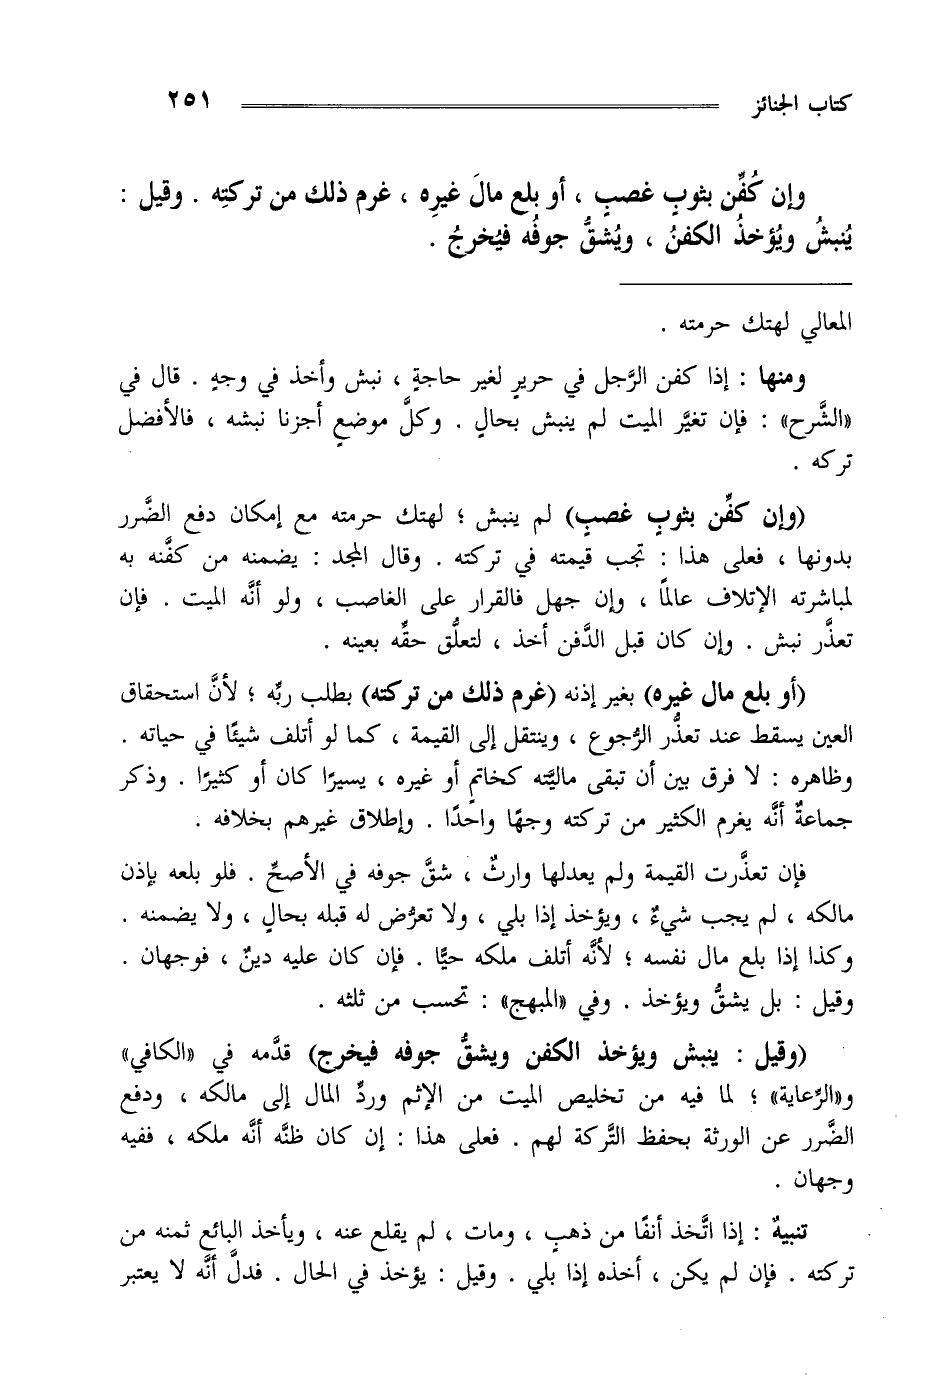 كتاب الجنائز ٢٥١
وإن كُفِّن بثوبٍ غصبٍ ، أو بلع مالَ غيرِه ، غرم ذلك من تركتِه . وقيل :
يُنبشُ ويُؤخذُ الكفنُ ، ويُشقُّ جوفُه فيُخرجُ .
المعالي لهتك حرمته .
ومنها : إذا كفن الرَّجل في حريرٍ لغير حاجةٍ ، نبش وأخذ في وجهٍ . قال في
«الشَّرح» : فإن تغيَّر الميت لم ينبش بحالٍ . وكلَّ موضعٍ أجزنا نبشه ، فالأفضل
تركه .
(وإن كفِّن بثوبٍ غصبٍ) لم ينبش ؛ لهتك حرمته مع إمكان دفع الضَّرر
بدونها ، فعلى هذا : تجب قيمته في تركته . وقال المجد : يضمنه من كفَّنه به
لمباشرته الإتلاف عالمًا ، وإن جهل فالقرار على الغاصب ، ولو أنَّه الميت . فإن
تعذَّر نبش . وإن كان قبل الدَّفن أخذ ، لتعلُّق حقِّه بعينه .
(أو بلع مال غيره) بغير إذنه (غرم ذلك من تركته) بطلب ربِّه ؛ لأنَّ استحقاق
العين يسقط عند تعذُّر الرُّجوع ، وينتقل إلى القيمة ، كما لو أتلف شيئًا في حياته .
وظاهره : لا فرق بين أن تبقى ماليَّته كخاتمٍ أو غيره ، يسيرًا كان أو كثيرًا . وذكر
جماعةٌ أنَّه يغرم الكثير من تركته وجهًا واحدًا . وإطلاق غيرهم بخلافه .
فإن تعذَّرت القيمة ولم يعدلها وارثٌ ، شقَّ جوفه في الأصحِّ . فلو بلعه بإذن
مالكه ، لم يجب شيءٌ ، ويؤخذ إذا بلي ، ولا تعرُّض له قبله بحالٍ ، ولا يضمنه .
وكذا إذا بلع مال نفسه ؛ لأنَّه أتلف ملكه حيًّا . فإن كان عليه دينٌ ، فوجهان .
وقيل : بل يشقُّ ويؤخذ . وفي «المبهج» : تحسب من ثلثه .
(وقيل : ينبش ويؤخذ الكفن ويشقُّ جوفه فيخرج) قدَّمه في «الكافي»
و«الرِّعاية» ؛ لما فيه من تخليص الميت من الإثم وردِّ المال إلى مالكه ، ودفع
الضَّرر عن الورثة بحفظ التَّركة لهم . فعلى هذا : إن كان ظنَّه أنَّه ملكه ، ففيه
وجهان .
تنبيهٌ : إذا اتَّخذ أنفًا من ذهبٍ ، ومات ، لم يقلع عنه ، ويأخذ البائع ثمنه من
تركته . فإن لم يكن ، أخذه إذا بلي . وقيل : يؤخذ في الحال . فدلَّ أنَّه لا يعتبر